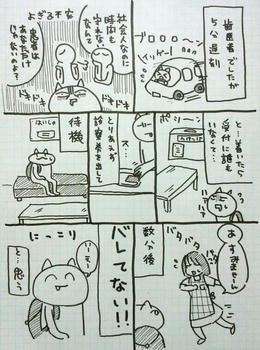 歯医者でしたが
5分遅刻
ブロロロ〜ン
社会人なのに
時間も
守れない
なんて
よぎる不安
患者は
あなただけ
じゃないのよ？
ドキドキ
ドキドキ
と…着いたら
受付に誰も
いなくて…
ポツーン
とりあえず
診察券を出して
スッ…
待機
はいしゃ
数分後
あ、すみませーん
バタバタ
バレてない!!
いーえー
にっこり
と…思う